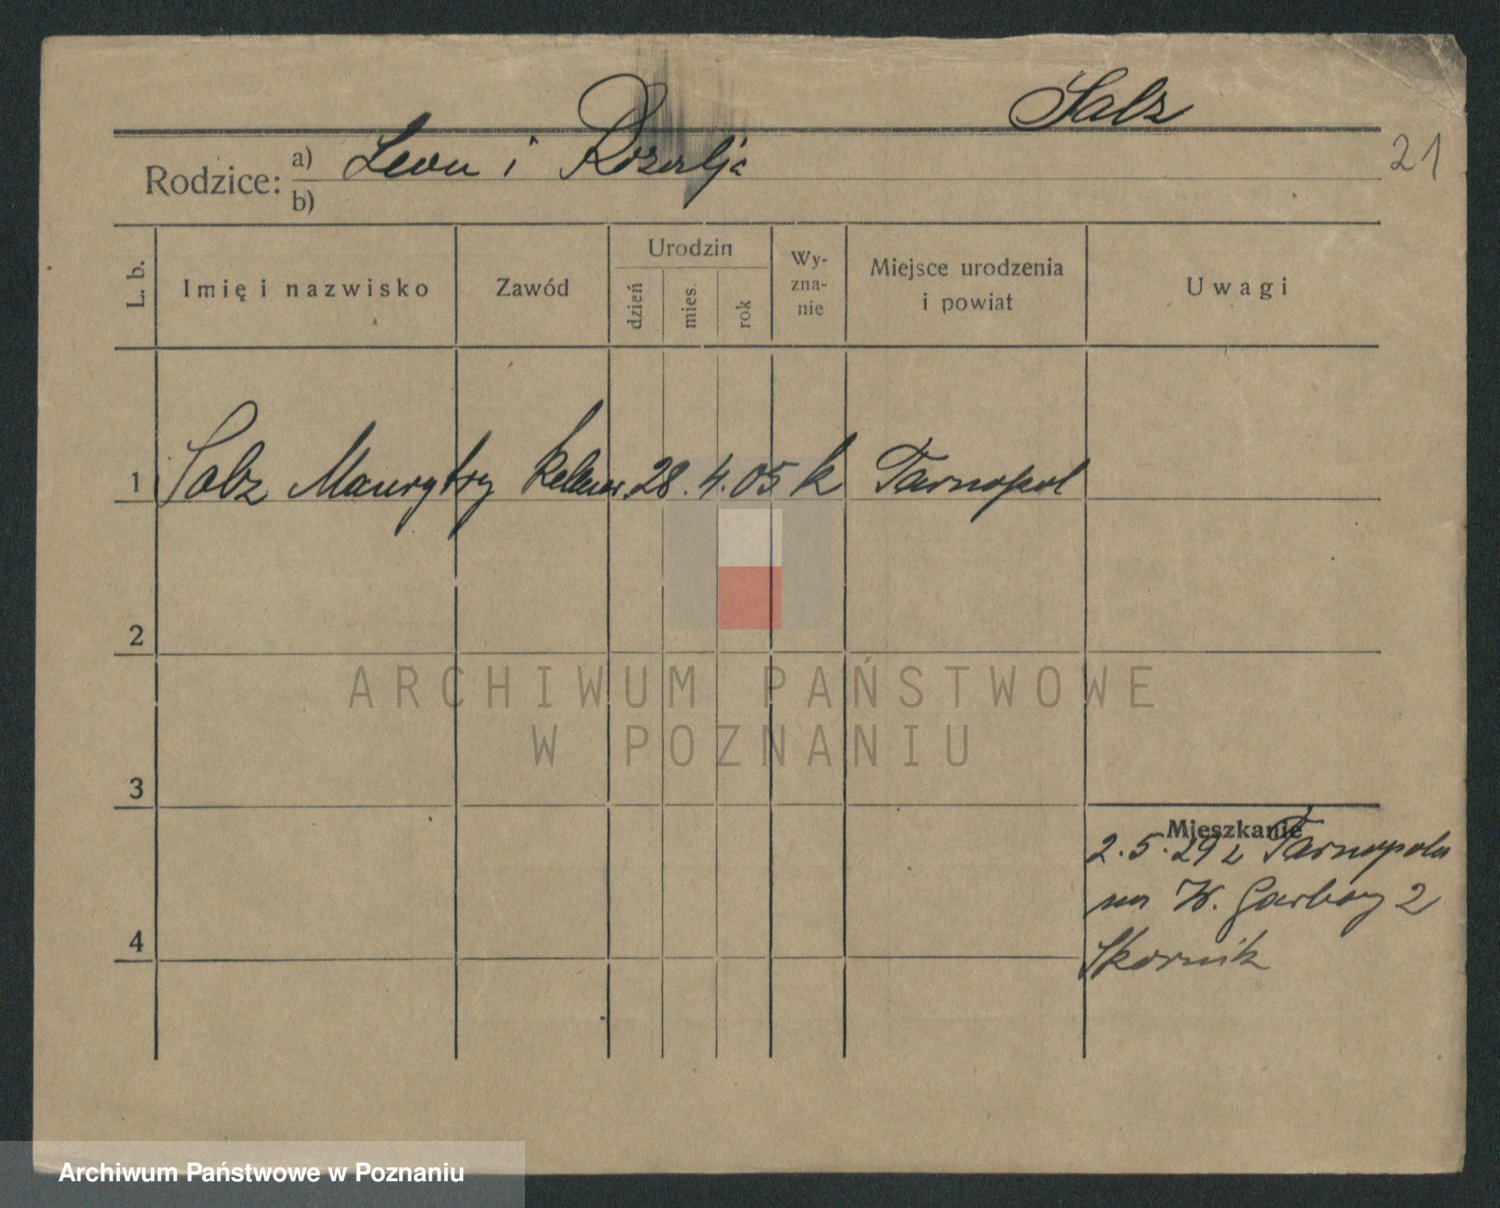 Salz
21
Rodzice: a) Leon i Rozalja
b)
L. b. Imię i nazwisko Zawód Urodzin dzień mies. rok Wy-zna-nie Miejsce urodzenia i powiat Uwagi
1 Salz Maurycy kelner 28. 4. 05 k Tarnopol
2
3
4
Mieszkanie
2. 5. 29 z Tarnopola
na W. Garbary 2
Skornik
ARCHIWUM PAŃSTWOWE
W POZNANIU
Archiwum Państwowe w Poznaniu